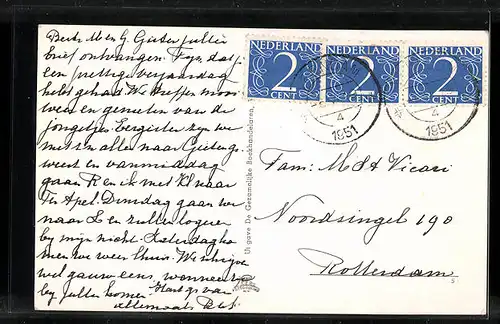 Beste M en G. Gister jullie
brief ontvangen. Fijn dat je
een prettige verjaardag
hebt gehad. We treffen mooi
weer en genieten van de
jongetjes. Eergister zijn we
met z'n allen naar
geweest en vanmiddag
gaan R en ik met Kl naar
Ter Apel. Dinsdag gaan we
naar L en zullen logeren
bij mijn nicht. Zaterdag
komen we weer thuis. We schrijven
wel gauw eens, wanneer we
bij jullie komen. Hart. gr. van
allemaal
Uitgave De Gezamelijke Boekhandelaren,
NEDERLAND
2
CENT
NEDERLAND
2
CENT
NEDERLAND
2
CENT
4
1951
4
1951
Fam: M d A Vicari
Noordsingel 190
Rotterdam